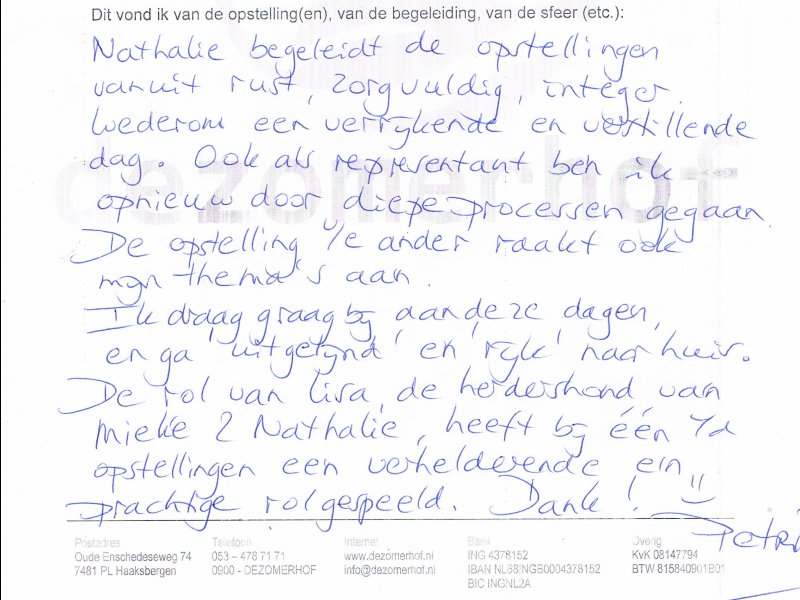 Dit vond ik van de opstelling(en), van de begeleiding, van de sfeer (etc.):
Nathalie begeleidt de opstellingen
vanuit rust, zorgvuldig, integer.
Wederom een verrijkende en verstillende
dag. Ook als representant ben ik
opnieuw door diepe processen gegaan.
De opstelling v/e ander raakt ook
mijn thema's aan.
Ik draag graag bij aan deze dagen,
en ga 'uitgelijnd' en 'rijk' naar huis.
De rol van Lisa, de herdershond van
Mieke & Nathalie, heeft bij één v/d
opstellingen een verhelderende en
prachtige rol gespeeld. Dank!
dezomerhof
Postadres
Oude Enschedeseweg 74
7481 PL Haaksbergen
Telefoon
053 – 478 71 71
0900 - DEZOMERHOF
Internet
www.dezomerhof.nl
info@dezomerhof.nl
Bank
ING 4378152
IBAN NL68INGB0004378152
BIC INGNL2A
Overig
KvK 08147794
BTW 815840901B01